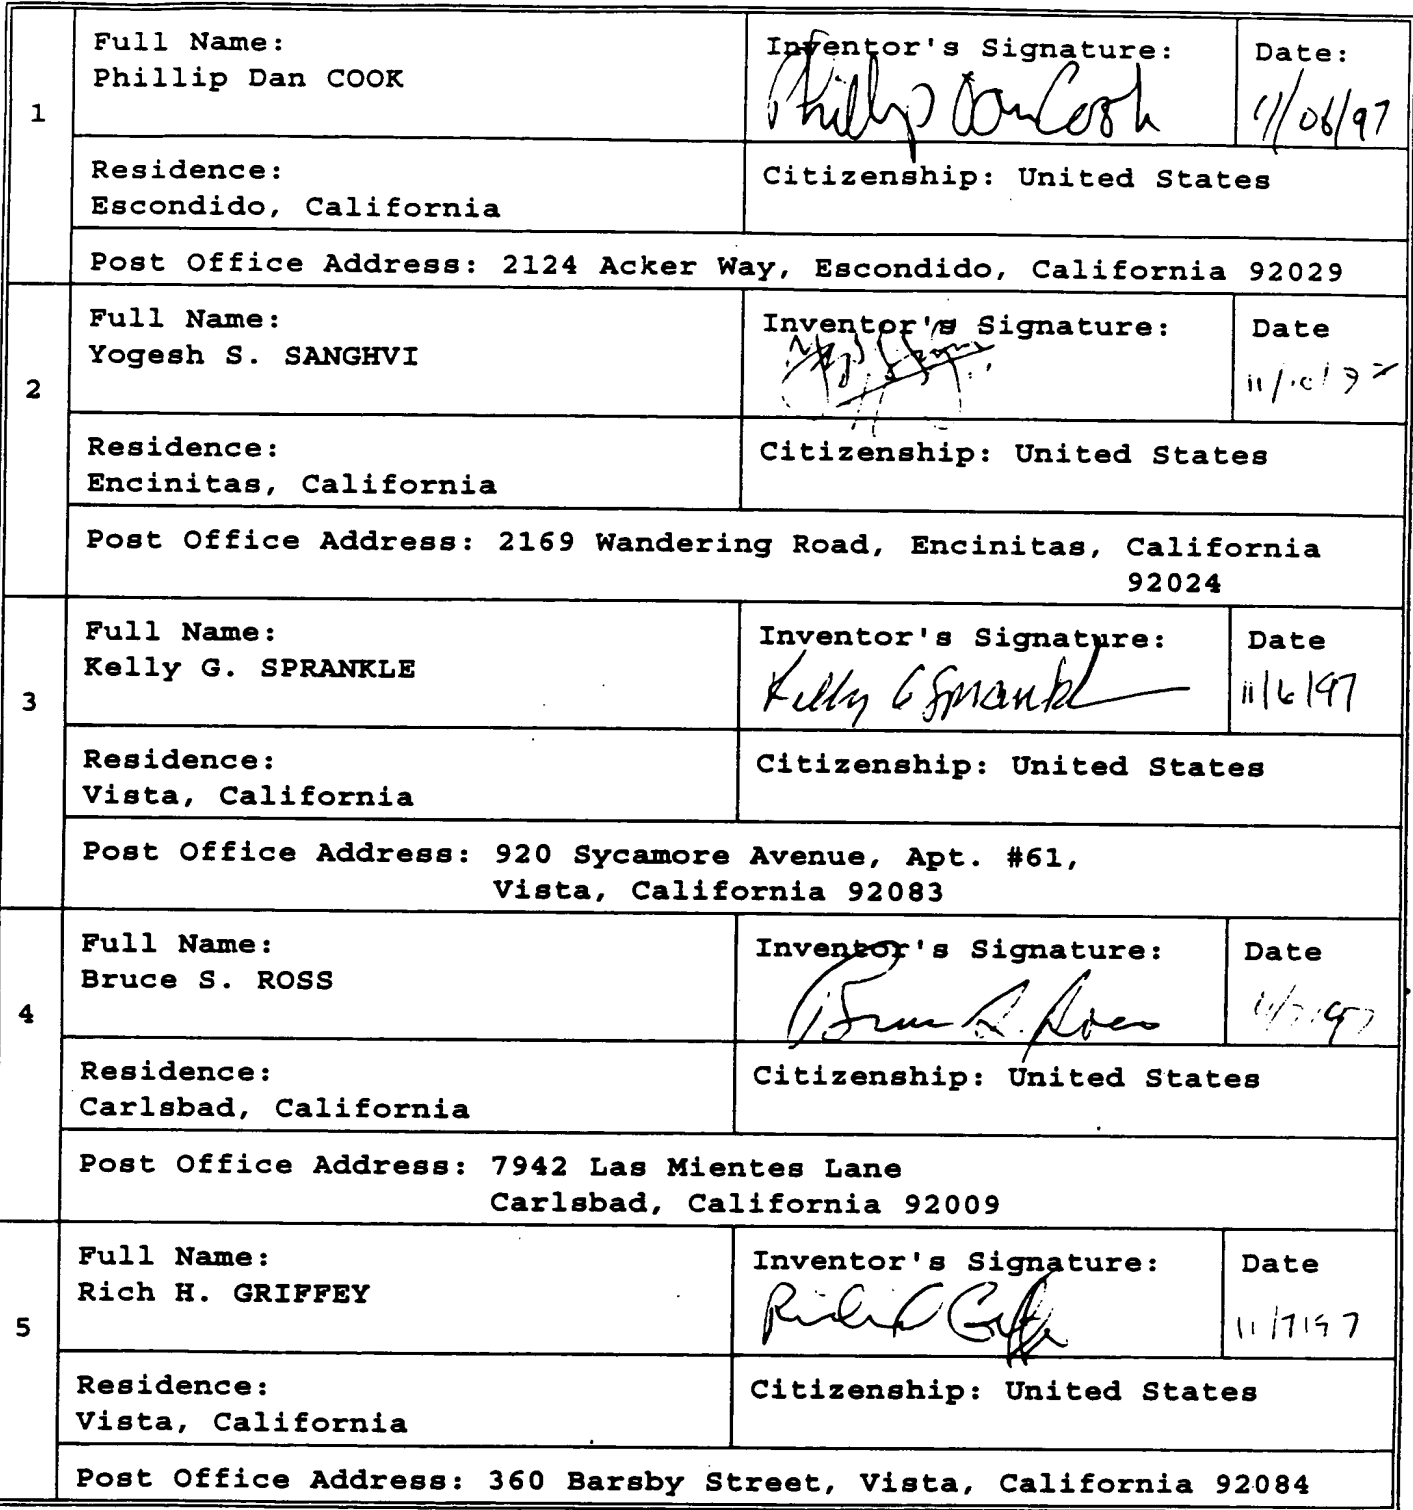 1
Full Name:
Phillip Dan COOK
Inventor's Signature:
Phillip Dan Cook
Date:
11/06/97
Residence:
Escondido, California
Citizenship: United States
Post Office Address: 2124 Acker Way, Escondido, California 92029
2
Full Name:
Yogesh S. SANGHVI
Inventor's Signature:
Date
11/10/97
Residence:
Encinitas, California
Citizenship: United States
Post Office Address: 2169 Wandering Road, Encinitas, California
92024
3
Full Name:
Kelly G. SPRANKLE
Inventor's Signature:
Kelly G Sprankle
Date
11/6/97
Residence:
Vista, California
Citizenship: United States
Post Office Address: 920 Sycamore Avenue, Apt. #61,
Vista, California 92083
4
Full Name:
Bruce S. ROSS
Inventor's Signature:
Bruce S. Ross
Date
11/7/97
Residence:
Carlsbad, California
Citizenship: United States
Post Office Address: 7942 Las Mientes Lane
Carlsbad, California 92009
5
Full Name:
Rich H. GRIFFEY
Inventor's Signature:
Date
11/7/97
Residence:
Vista, California
Citizenship: United States
Post Office Address: 360 Barsby Street, Vista, California 92084